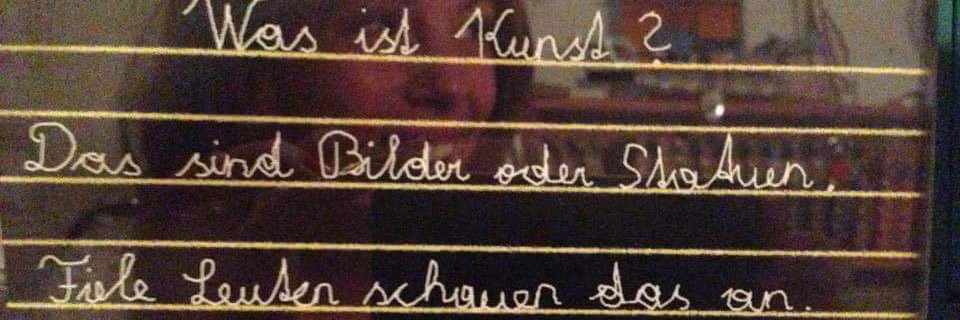 Was ist Kunst?
Das sind Bilder oder Statuen.
Fiele Leuten schauen das an.